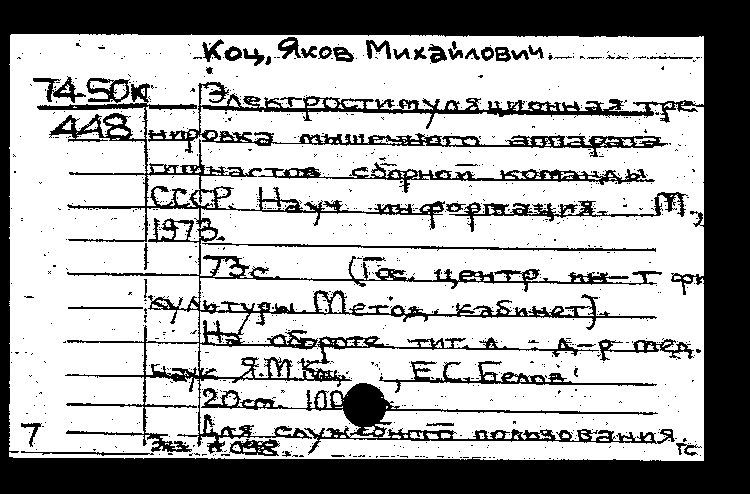 Коц, Яков Михайлович.
74-50к Электростимуляционная тре-
448 нировка мышечного аппарата
гимнастов сборной команды
СССР. Науч. информация. М.,
1973.
73с. (Гос. центр. ин-т фи
культуры. Метод. кабинет).
На обороте тит. л. - д-р мед.
наук Я.М.Коц, Е.С.Белов.
20см. 100
Для служебного пользования.
7 Экз. №098. ТС